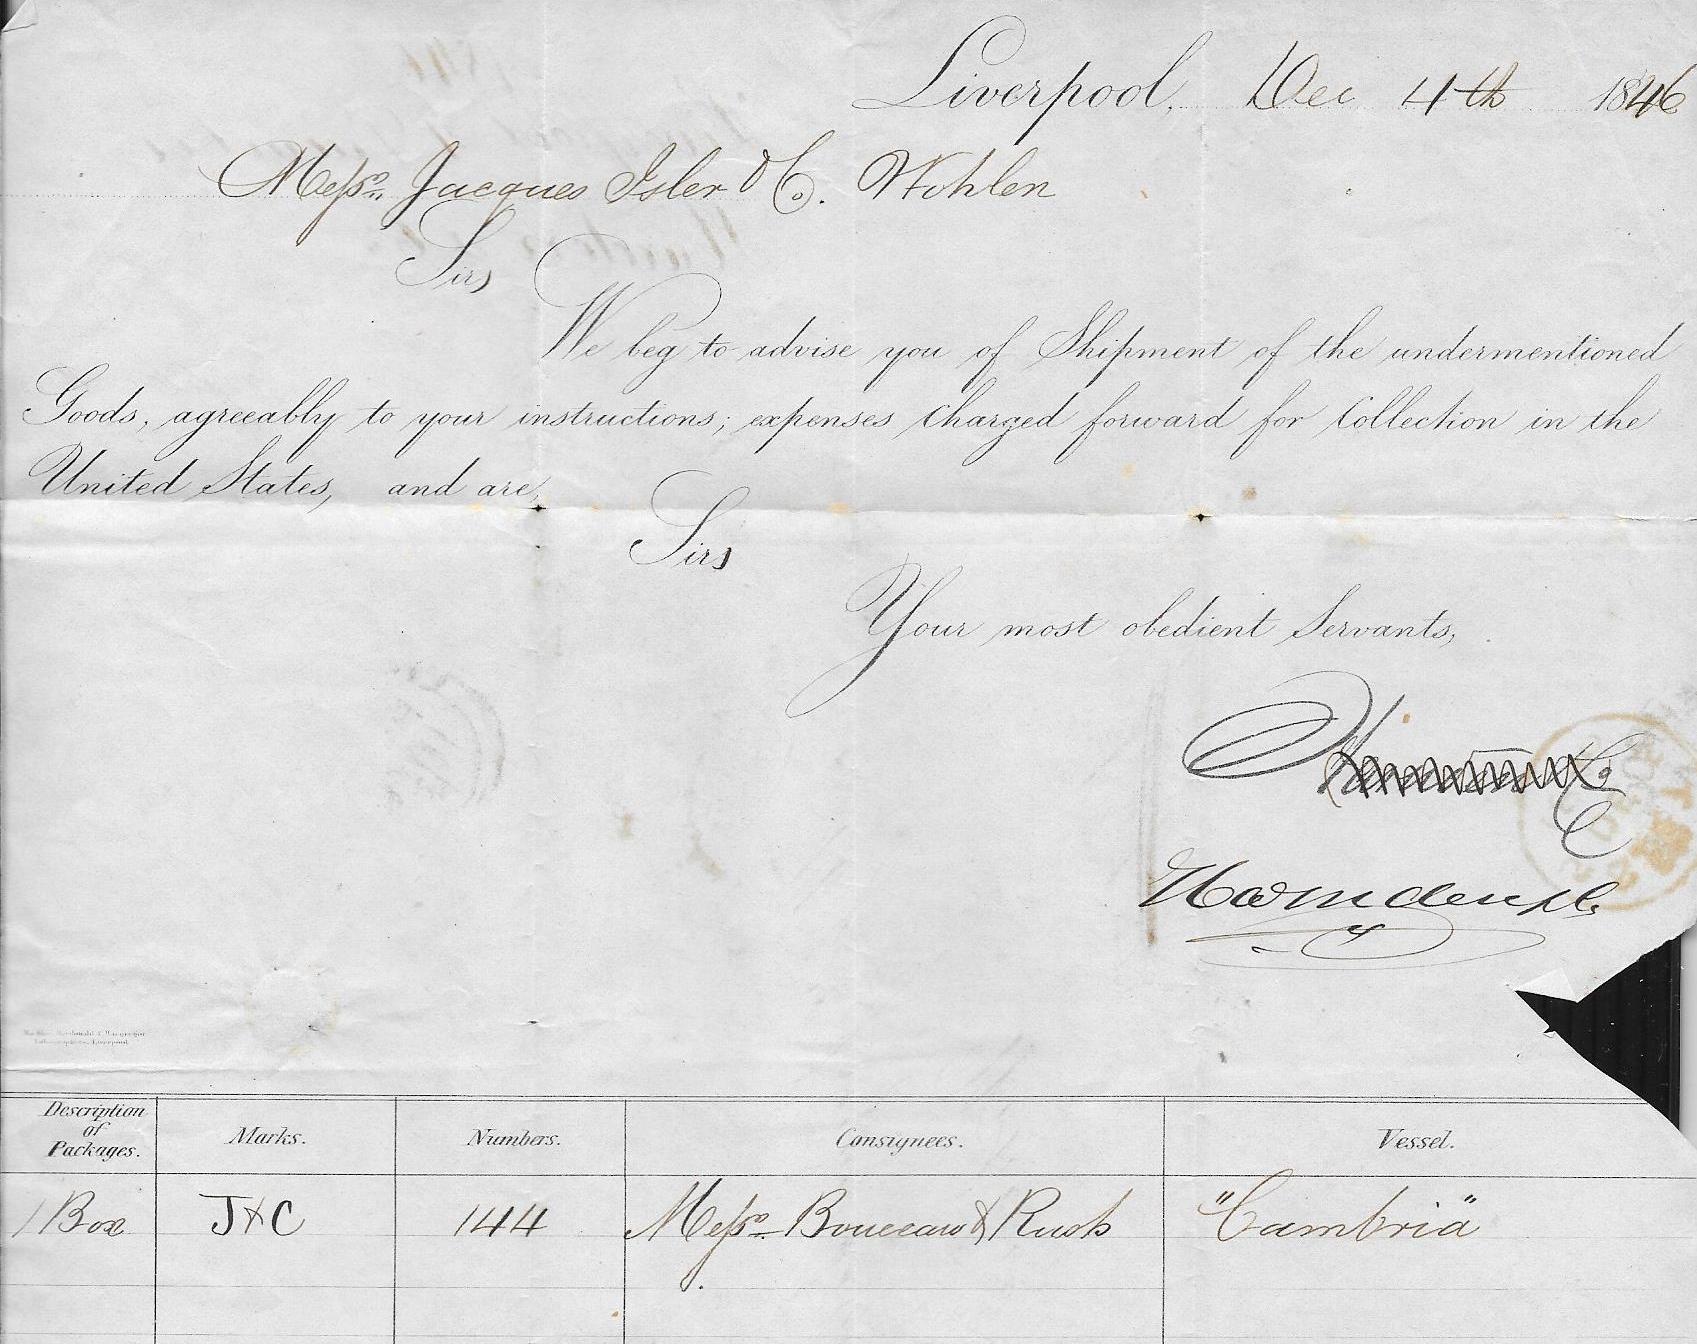 Liverpool, Dec 4th 1846
Messrs. Jacques Isler & Co. Wohlen
Sirs
We beg to advise you of Shipment of the undermentioned
Goods, agreeably to your instructions; expenses charged forward for Collection in the
United States, and are,
Sirs
Your most obedient Servants,
Harnden & Co
Description of Packages. Marks. Numbers. Consignees. Vessel.
1 Box J & C 144 Messrs & Rush "Cambria"